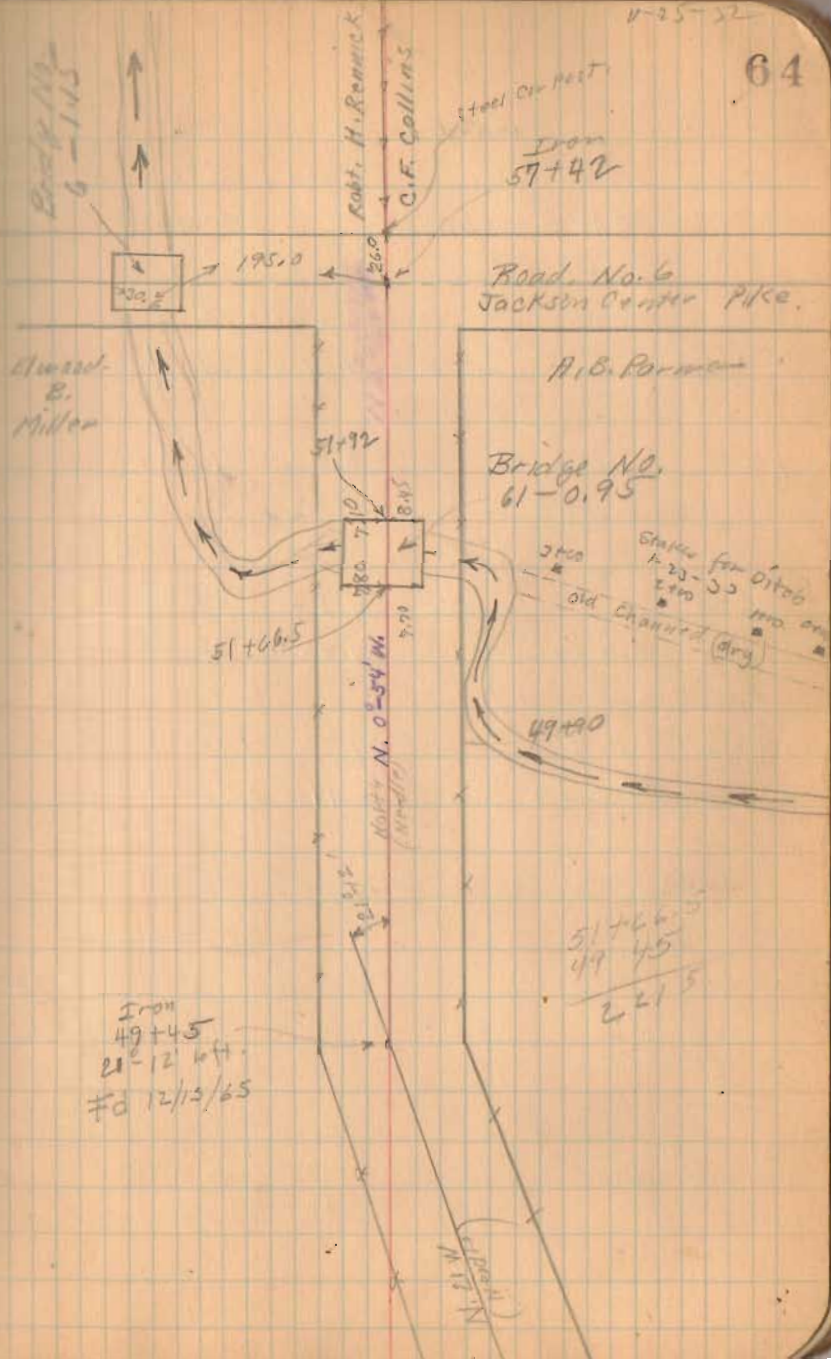 11-25-32
64
Bridge No.
6-145
Robt. H. Rennick
C.F. Collins
Steel Cor Post.
Iron
57+42
195.0
26.0
Road. No. 6
Jackson Center Pike.
Elwood
B.
Miller
A.B. Parman
51+92
7.10
8.45
Bridge No.
61-0.95
7.80
7.70
51+66.5
3+00
Stakes for Ditch
1-23-33
2+00
1+00
Old Channel (dry)
N. 0°-54' W.
North
(Needle)
49+90
21°12'
51+66.5
49 45
2 21 5
Iron
49+45
21°-12' Lft.
Fd 12/13/65
N. 21 W
(Needle)